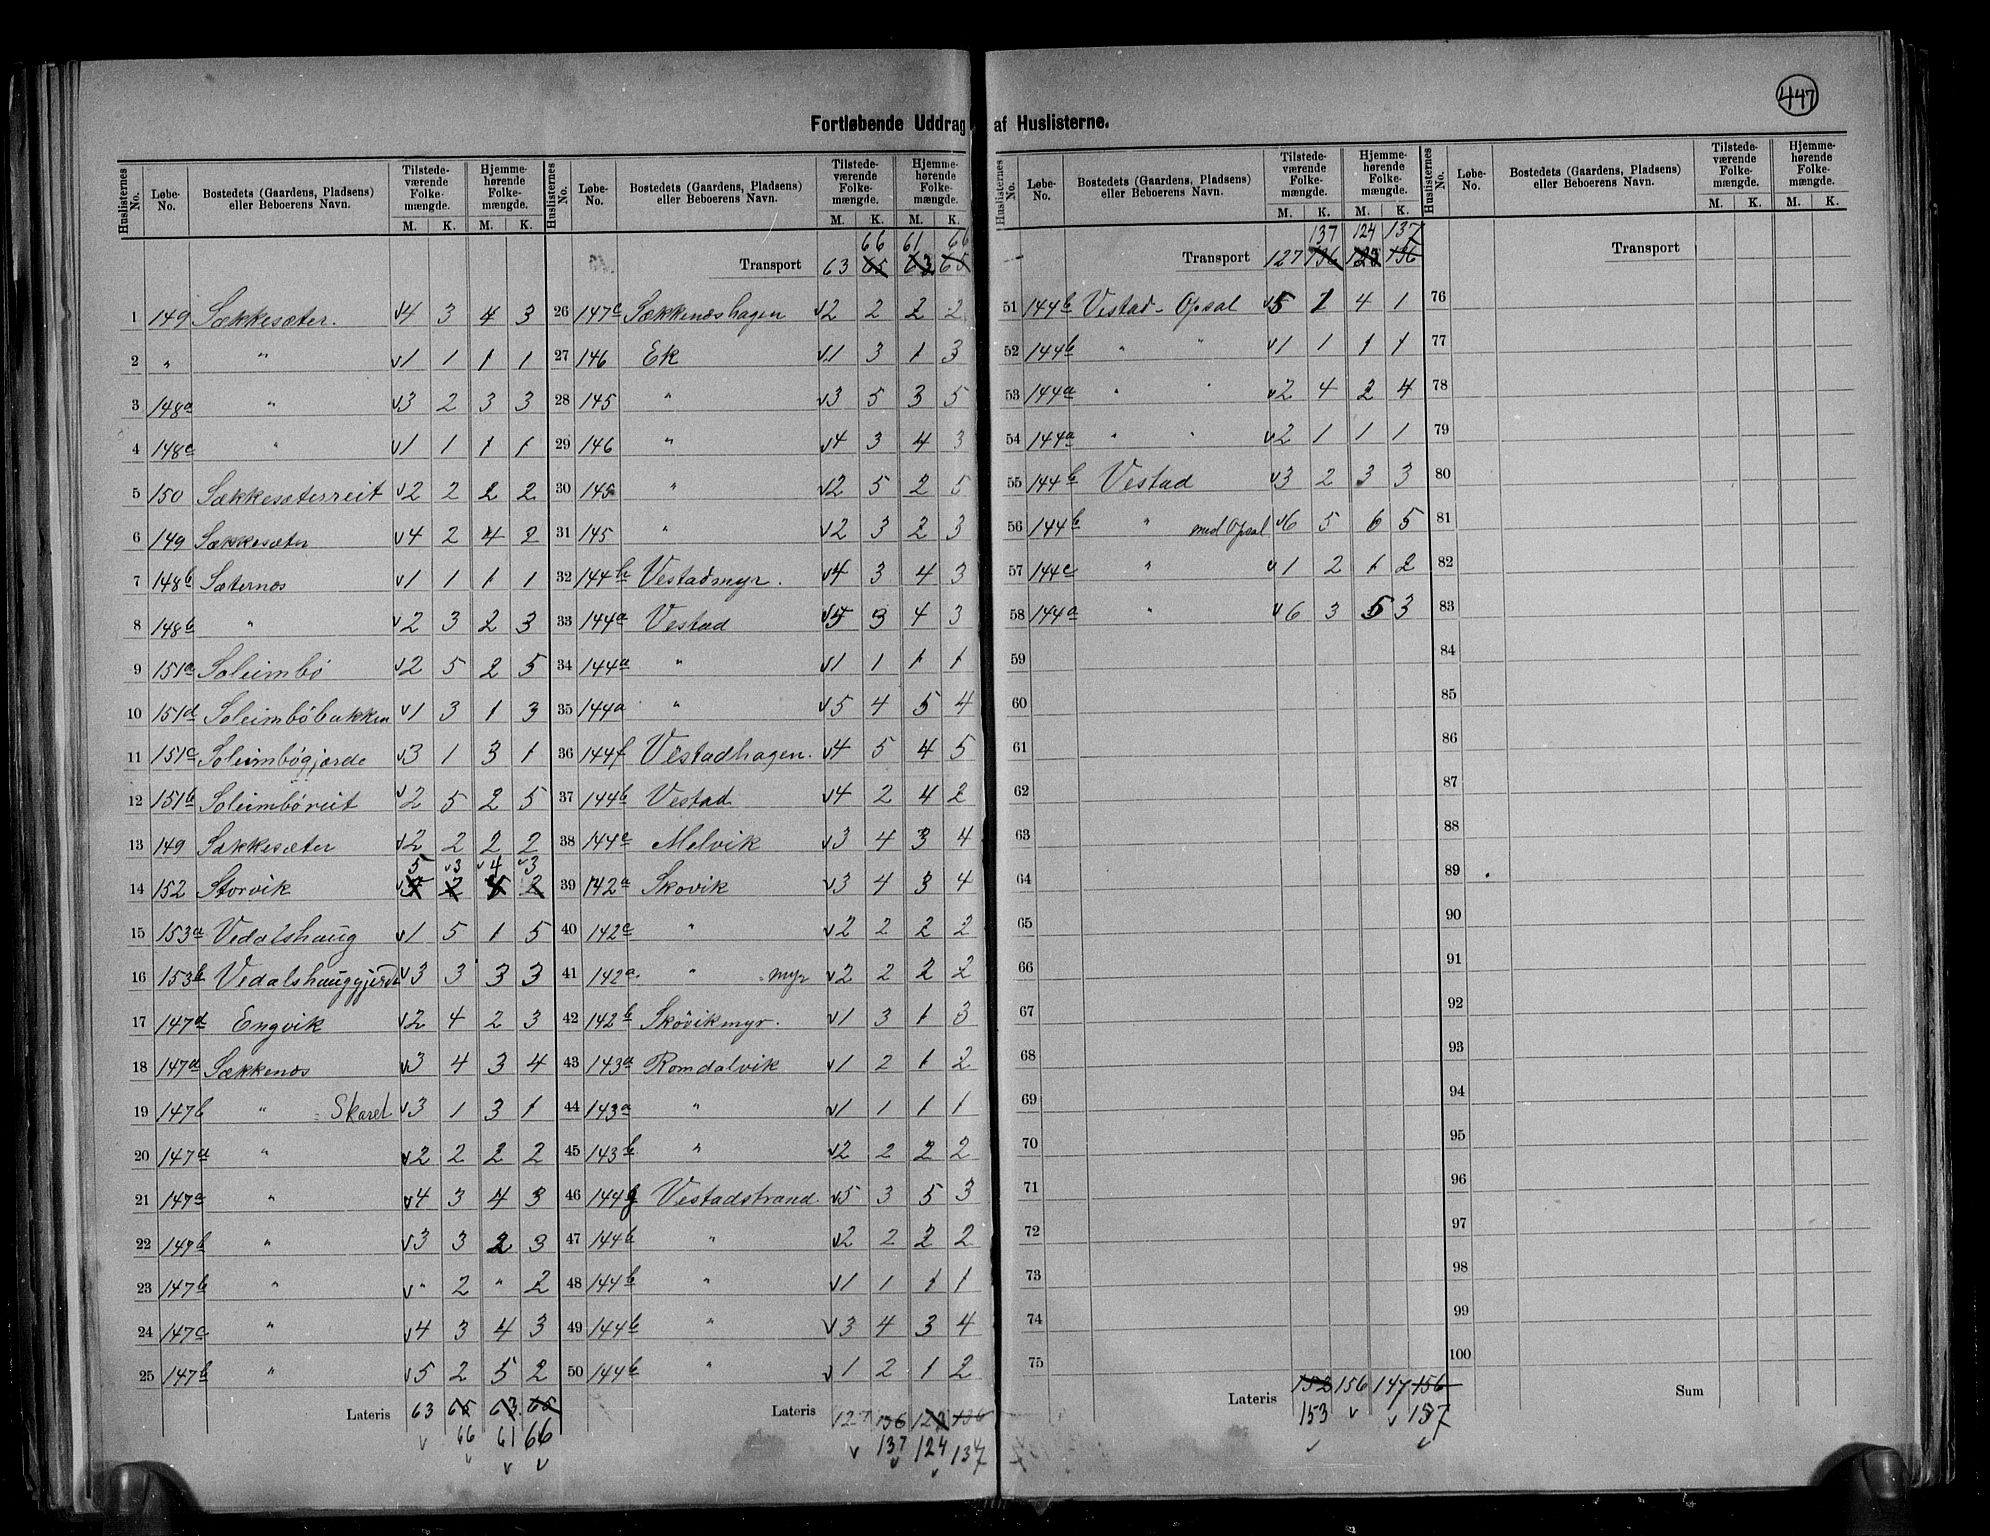 447
Fortløbende Uddrag af Huslisterne.
Huslisternes No. Løbe-No. Bostedets (Gaardens, Pladsens) eller Beboerens Navn. Tilstedeværende Folkemængde. M. K. Hjemmehørende Folkemængde. M. K.
1 149 Sækkesæter. v4 3 4 3
2 " " v1 1 1 1
3 148a " v3 2 3 3
4 148c " v1 1 1 1
5 150 Sækkesæterreit v2 2 2 2
6 149 Sækkesæter v4 2 4 2
7 148b Sæternes v1 1 1 1
8 148b " v2 3 2 3
9 151a Soleimbø v2 5 2 5
10 151d Soleimbøbakken v1 3 1 3
11 151c Soleimbøgjærde v3 1 3 1
12 151b Soleimbøreit v2 5 2 5
13 149 Sækkesæter v2 2 2 2
5 v3 v4 v3
14 152 Storvik
15 153a Vedalshaug v1 5 1 5
16 153b Vedalshauggjerde v3 3 3 3
17 147d Engvik v2 4 2 3
18 147d Sækkenæs v3 4 3 4
19 147b " Skaret v3 1 3 1
20 147a " v2 2 2 2
21 147a " v4 3 4 3
22 147b " v3 3 2 3
23 147b " v" 2 " 2
24 147c " v4 3 4 3
25 147b " v5 2 5 2
Lateris 63 65 63 65
66 61 66
Huslisternes No. Løbe-No. Bostedets (Gaardens, Pladsens) eller Beboerens Navn. Tilstedeværende Folkemængde. M. K. Hjemmehørende Folkemængde. M. K.
66 61 66
Transport 63 65 63 65
26 147c Sækkenæshagen v2 2 2 2
27 146 Ek v1 3 1 3
28 145 " v3 5 3 5
29 146 " v4 3 4 3
30 145 " v2 5 2 5
31 145 " v2 3 2 3
32 144h Vestadmyr. v4 3 4 3
33 144a Vestad v5 3 4 3
34 144a " v1 1 1 1
35 144a " v5 4 5 4
36 144f Vestadhagen. v4 5 4 5
37 144b Vestad v4 2 4 2
38 144e Melvik v3 4 3 4
39 142a Skovik v3 4 3 4
40 142c " v2 2 2 2
41 142a " myr v2 2 2 2
42 142b Skøvikmyr. v1 3 1 3
43 143a Romdalvik v1 2 1 2
44 143a " v1 1 1 1
45 143b " v2 2 2 2
46 144g Vestadstrand. v5 3 5 3
47 144b " v2 2 2 2
48 144b " v1 1 1 1
49 144b " v3 4 3 4
50 144b " v1 2 1 2
Lateris 127 136 136
137 124 137
Huslisternes No. Løbe-No. Bostedets (Gaardens, Pladsens) eller Beboerens Navn. Tilstedeværende Folkemængde. M. K. Hjemmehørende Folkemængde. M. K.
137 124 137
Transport 127 136 136
51 144b Vestad - Opsal v5 1 4 1
52 144b " " v1 1 1 1
53 144a " " v2 4 2 4
54 144a " " v2 1 1 1
55 144b Vestad v3 2 3 3
56 144b " med Opsal v6 5 6 5
57 144c " v1 2 1 2
58 144a " v6 3 5 3
59
60
61
62
63
64
65
66
67
68
69
70
71
72
73
74
75
Lateris 152 156 147 156
153 v v 157
Huslisternes No. Løbe-No. Bostedets (Gaardens, Pladsens) eller Beboerens Navn. Tilstedeværende Folkemængde. M. K. Hjemmehørende Folkemængde. M. K.
Transport
76
77
78
79
80
81
82
83
84
85
86
87
88
89
90
91
92
93
94
95
96
97
98
99
100
Sum